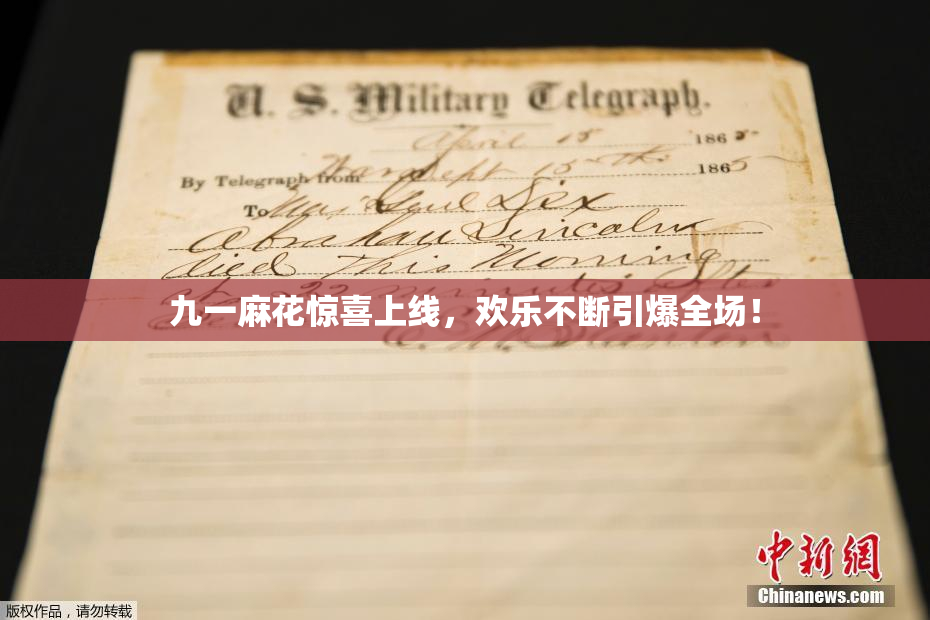 U. S. Military Telegraph.
April 15 1865
By Telegraph from War Dept 15th 1865
To Maj Genl Dix
Abraham Lincoln
died This Morning
at 22 minutes after
九一麻花惊喜上线，欢乐不断引爆全场！
E. M. Stanton
中新网
Chinanews.com
版权作品，请勿转载